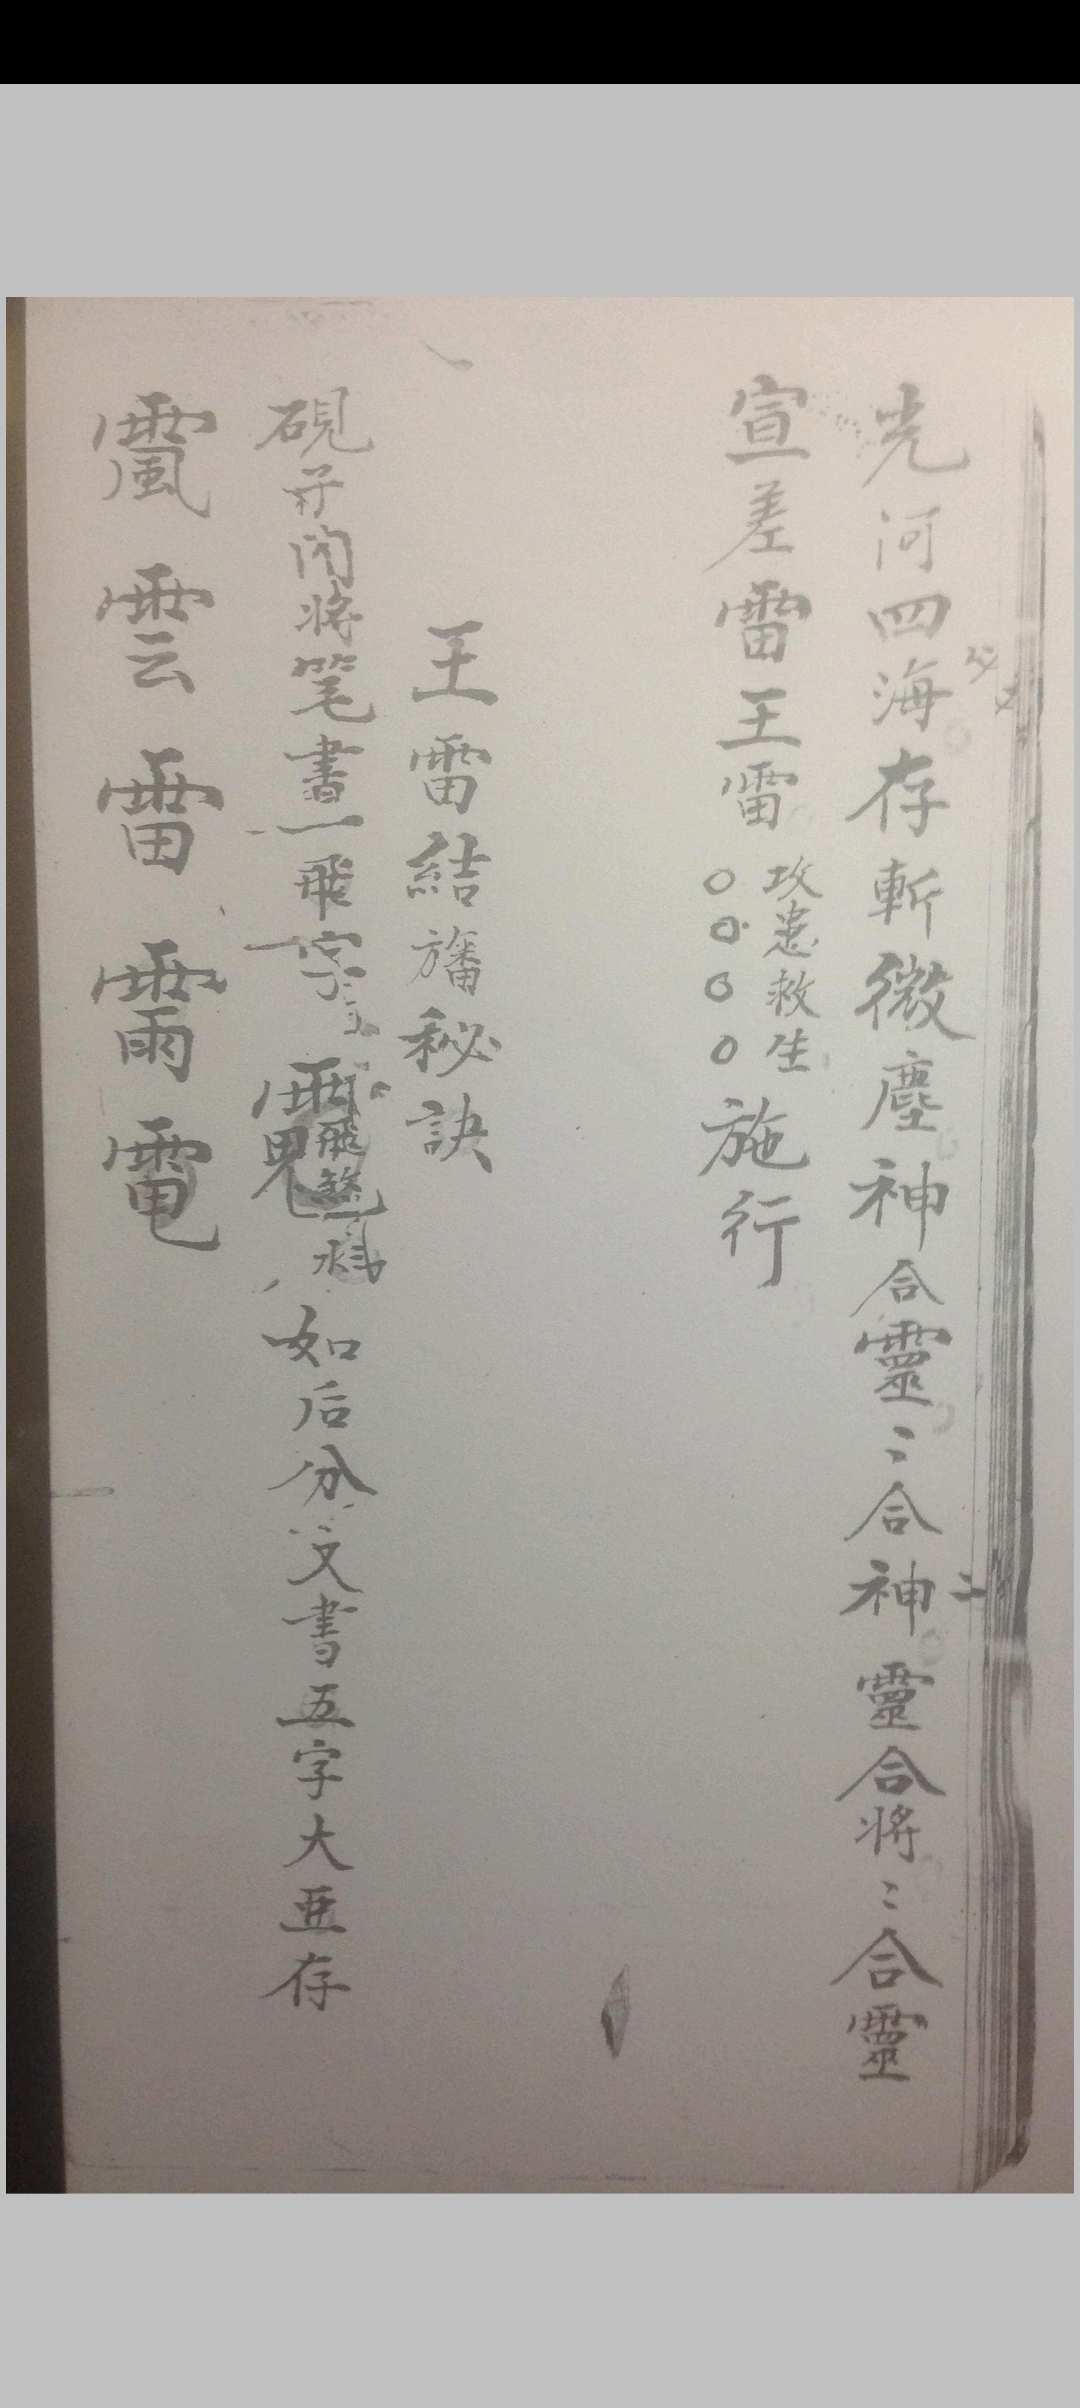 光河四海存斬微塵神合靈〻合神靈合將〻合靈
宣差雷王雷攻患救生施行
〇〇〇〇
王雷結旛秘訣
硯并內將筆書一飛字 如后分文書五字大亜存
飛煞
水
雲雷電